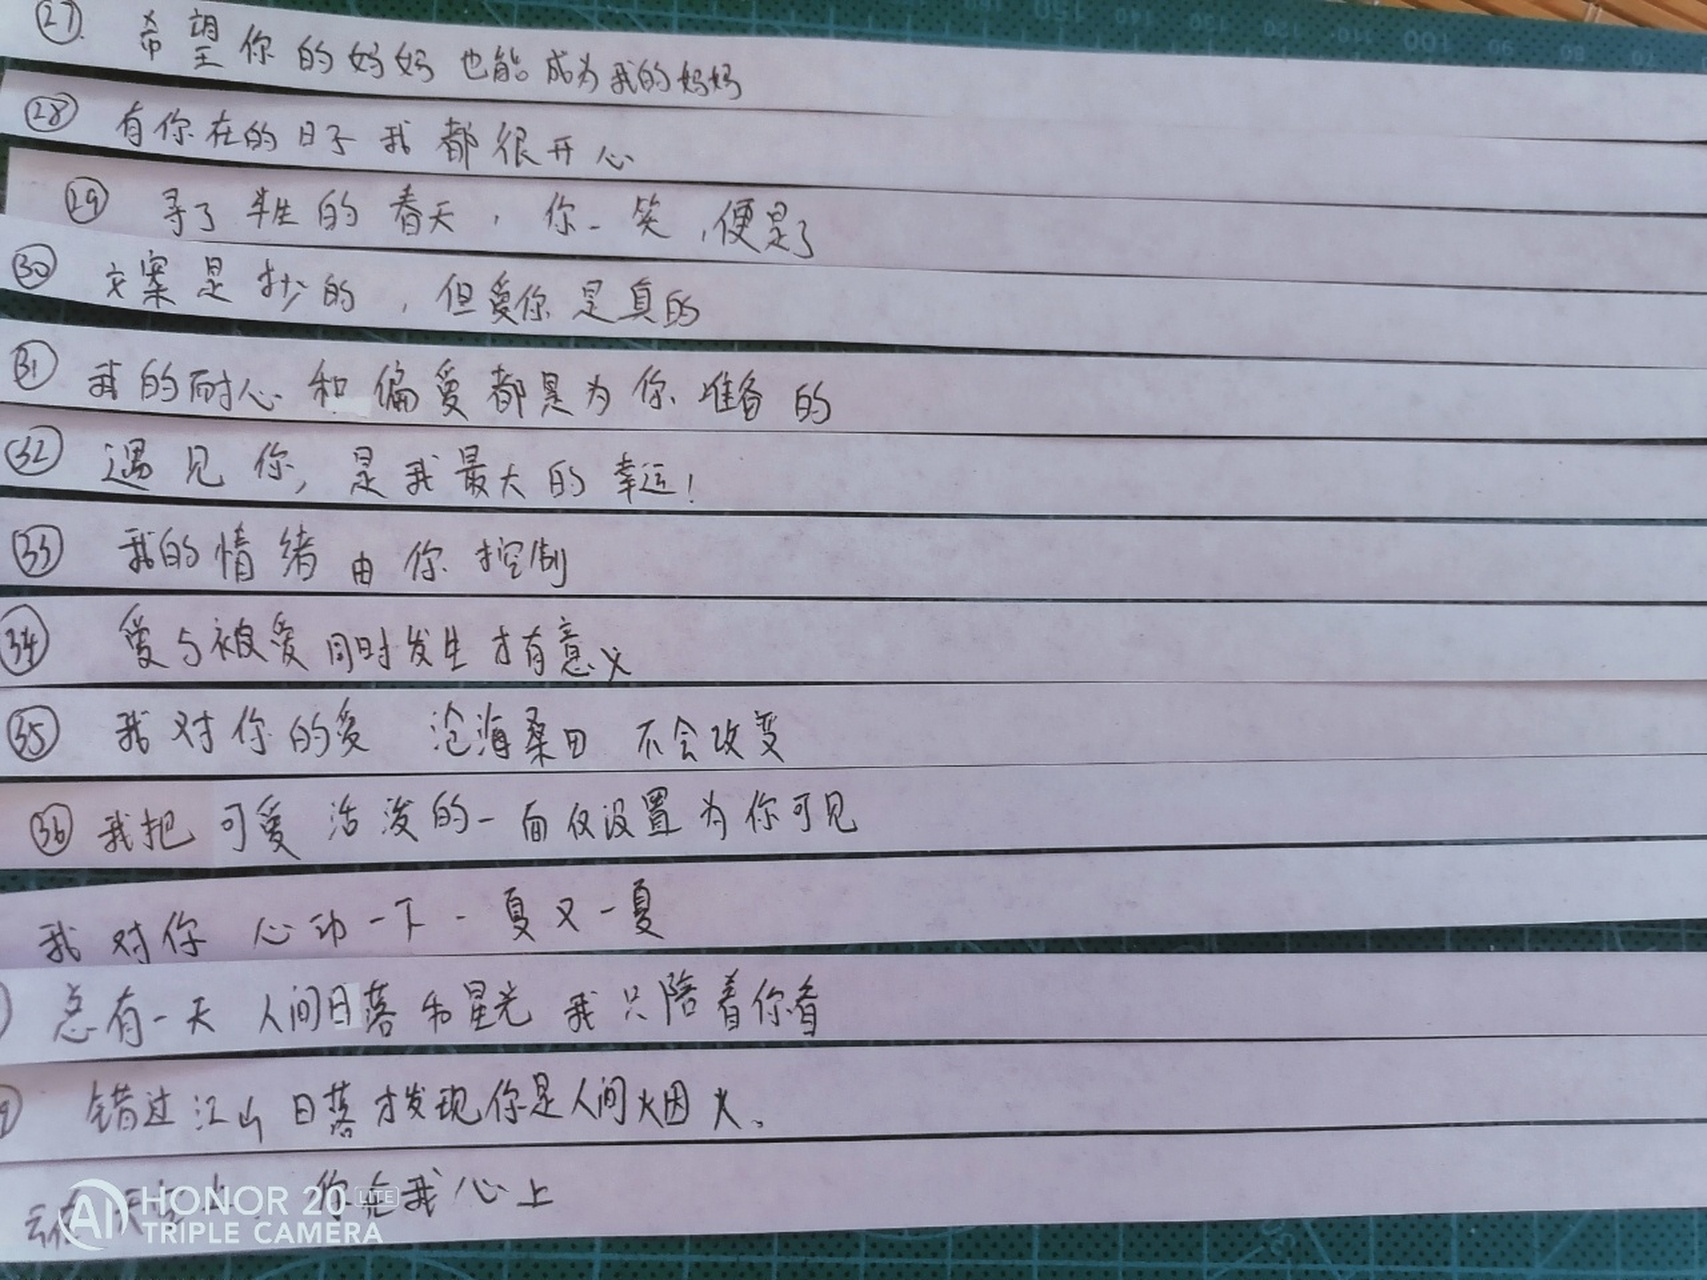 ㉗ 希望你的妈妈也能成为我的妈妈
㉘ 有你在的日子我都很开心
㉙ 寻了半生的春天，你一笑，便是了
㉚ 文案是抄的，但爱你是真的
㉛ 我的耐心和偏爱都是为你准备的
㉜ 遇见你，是我最大的幸运！
㉝ 我的情绪由你控制
㉞ 爱与被爱同时发生才有意义
㉟ 我对你的爱 沧海桑田 不会改变
㊱ 我把可爱活泼的一面仅设置为你可见
我对你心动一下一夏又一夏
总有一天 人间日落和星光 我只陪着你看
错过江山日落才发现你是人间烟火。
云在天空上 你在我心上
HONOR 20 LITE
TRIPLE CAMERA
100